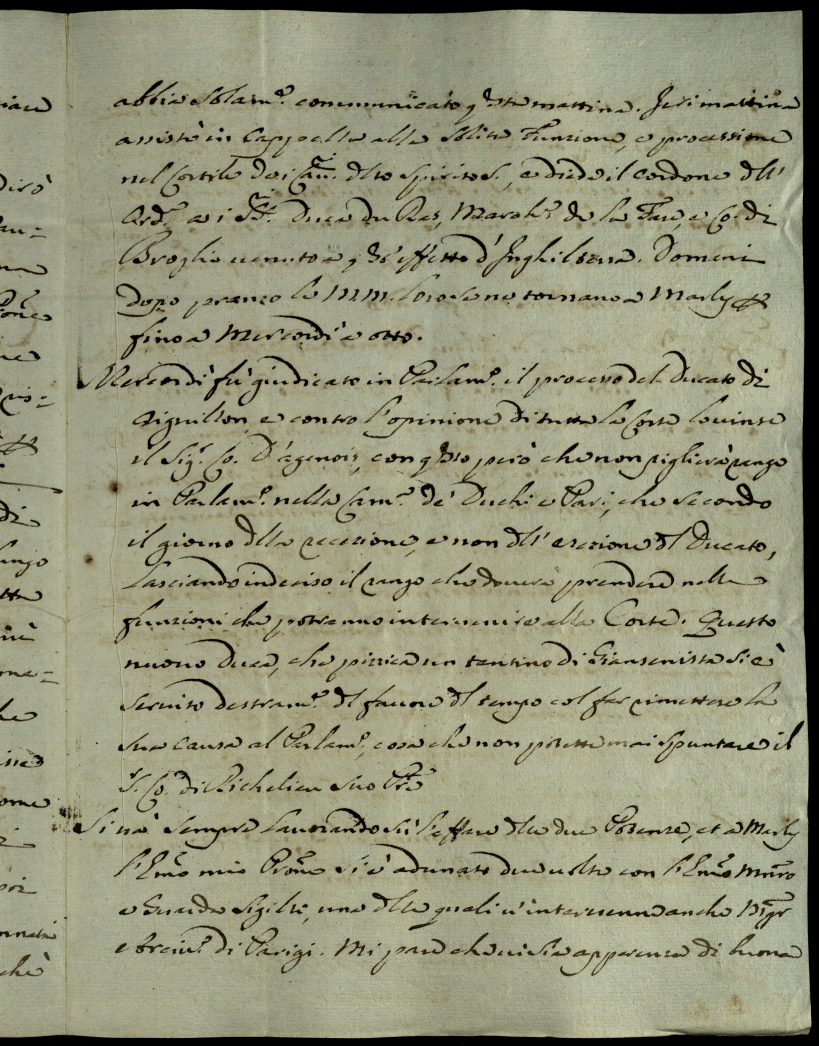 abbia solam.e communicato q.sta mattina. Jeri mattina
assistè in Cappella alla solita Funzione, e processione
nel Cortile de i Cau.ri dello Spirito S., e diede il cordone dell'
Ord.e a i SS.ri Duca du Ras, Maresh.o de la Fare, e Co. di
Broglio uenuto a q.sto effetto d'Inghilterra. Domani
dopo pranzo le MM. loro se ne tornano a Marly
fino a Mercordì a otto.
Mercordì fù giudicato in Parlam.o il processo del Ducato di
Aiguillon, e contro l'opinione di tutta la Corte lo uinse
il Sig.r Co. D'agenois, con q.sto però che non piglierà rango
in Parlam.o nella Cam.a de' Duchi e Pari, che secondo
il giorno dlla recezione, e non dll'erezione dl Ducato,
lasciando indeciso il rango che douerà prendere nelle
funzioni che potranno interuenire alla Corte. Questo
nuouo Duca, che pizzica un tantino di Giansenista si è
seruito destram.e dl fauore dl tempo col far rimettere la
sua causa al Parlam.o, cosa che non potette mai spuntare il
S. Co. di Richelieu suo P.re
Si uà sempre lauorando sù l'affare dlle due Potenze, et a Marly
l'Em̃o mio Prõne si è adunato due uolte con l'Em̃o
e Guarda Sigilli, una dlle quali u'interuenne anche Mgr
Arciu.o di Parigi. Mi pare che ui sia apparenza di buona
piace
dirò
ma
ne
di
lungo
più
che
poi
chè